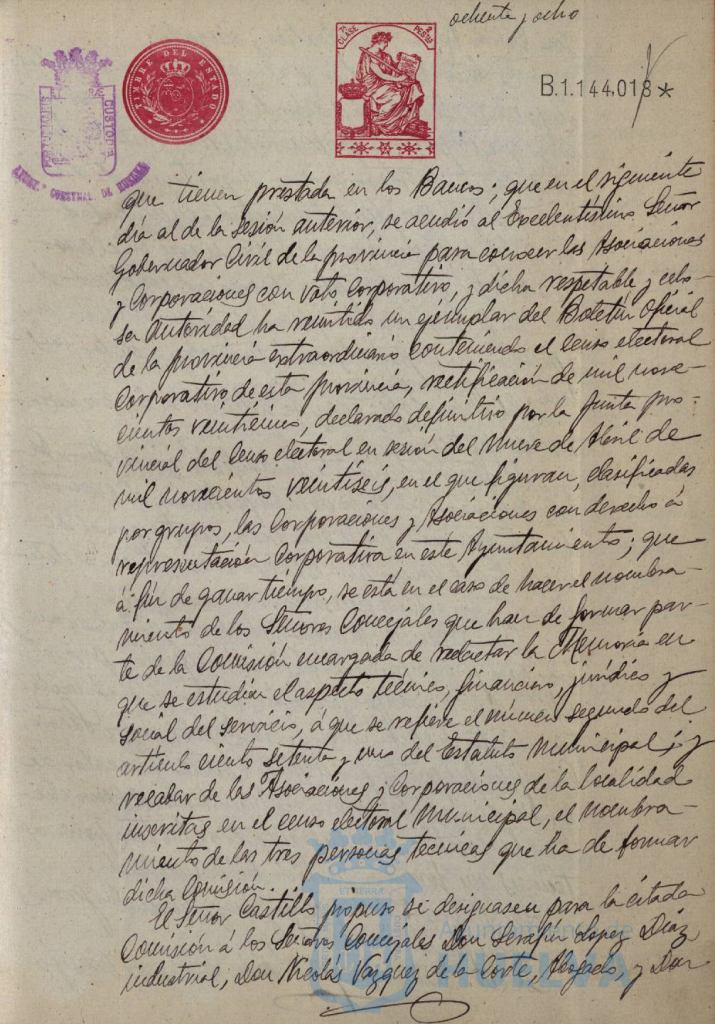 ochenta y ocho
7ª CLASE
PESETAS
TIMBRE DEL ESTADO
B.1.144.018 *
PORTUS MARIS
CUSTODIA
AYUNT.º CONSTNAL. DE HUELVA
que tienen prestada en los Bancos; que en el siguiente
día al de la sesión anterior, se acudió al Excelentísimo Señor
Gobernador Civil de la provincia para conocer las Asociaciones
y Corporaciones con voto Corporativo, y dicha respetable y celo-
sa Autoridad ha remitido un ejemplar del Boletín Oficial
de la provincia extraordinario conteniendo el censo electoral
Corporativo de esta provincia, rectificación de mil nove-
cientos veinticinco, declarado definitivo por la Junta pro-
vincial del Censo electoral en sesión del nueve de Abril de
mil novecientos veintiseis, en el que figuran, clasificadas
por grupos, las Corporaciones y Asociaciones con derecho á
representación Corporativa en este Ayuntamiento; que
á fin de ganar tiempo, se está en el caso de hacer el nombra-
miento de los Señores Concejales que han de formar par-
te de la Comisión encargada de redactar la Memoria en
que se estudian el aspecto técnico, financiero, jurídico y
social del servicio, á que se refiere el número segundo del
artículo ciento setenta y uno del Estatuto Municipal; y
recabar de las Asociaciones y Corporaciones de la localidad
inscritas en el censo electoral Municipal, el nombra-
miento de las tres personas técnicas que ha de formar
dicha Comisión.
El Señor Castillo propuso se designasen para la citada
Comisión á los Señores Concejales Don Serafín López Díaz
industrial, Don Nicolás Vázquez de la Corte, Abogado, y Don
Ayuntamiento de
HUELVA